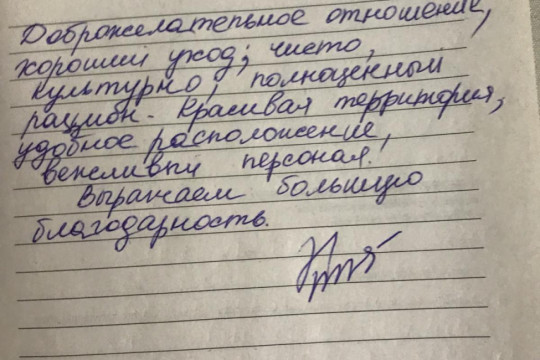 Доброжелательное отношение,
хороший уход; чисто,
культурно, полноценный
рацион. Красивая территория,
удобное расположение,
вежливый персонал.
Выражаем большую
благодарность.